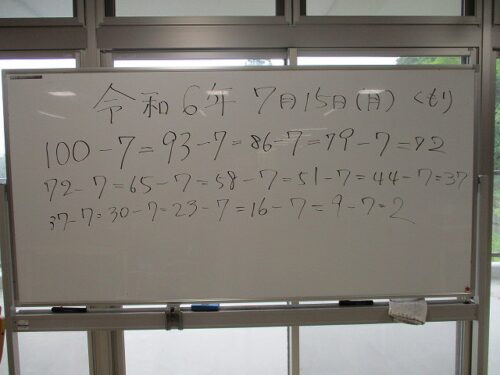 令和6年 7月15日(月) くもり
100-7=93-7=86-7=79-7=72
72-7=65-7=58-7=51-7=44-7=37
37-7=30-7=23-7=16-7=9-7=2